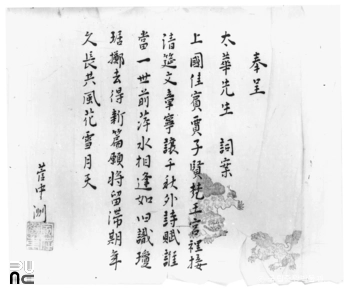 奉呈
太華先生　詞案
上國佳賓賈子賢花王宮裡接
清筵文章寧讓千秋外詩賦誰
當一世前萍水相逢如旧識瓊
琚擲去得新篇願將留滯期年
久長共風花雪月天
菅中
nc